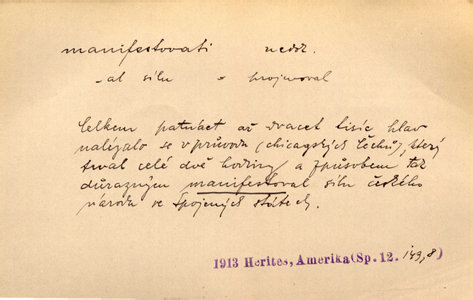 manifestovati nedok.
-al sílu = projevoval
Celkem patnáct až dvacet tisíc hlav
nalézalo se v průvodu (chicagských Čechů), který
trval celé dvě hodiny a způsobem tak
důrazným manifestoval sílu českého
národa ve Spojených státech.
1913 Herites, Amerika (Sp. 12. 149,8)